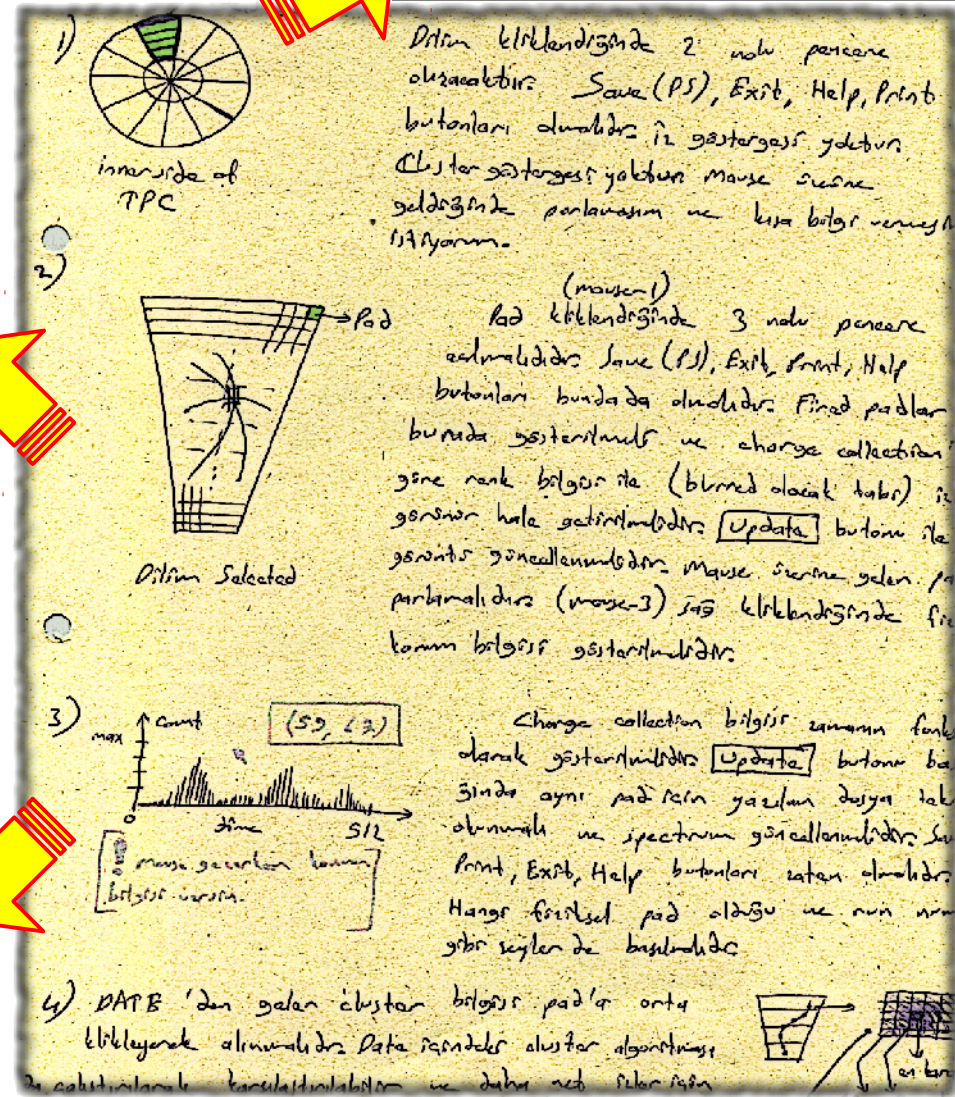 1)
inner side of
TPC
Dilim kliklendiğinde 2 nolu pencere
Save (PS), Exit, Help, Print
butonları olmalıdır. iz göstergesi yoktur.
Cluster göstergesi yoktur. Mouse üzerine
geldiğinde parlamasını ve kısa bilgi
istiyorum.
2)
Pad
Dilim Selected
(mouse-1)
Pad kliklendiğinde 3 nolu pencere
Save (PS), Exit, Print, Help
butonları bunda da olmalıdır. Fired padlar
burada gösterilmeli ve charge collection
göre renk bilgisi ile (blurred olacak tabi) iz
görünür hale getirilmelidir. Update butonu ile
görüntü güncellenmelidir. Mouse üzerine gelen
parlamalıdır. (mouse-3) sağ kliklendiğinde
konum bilgisi gösterilmelidir.
3)
max
count
0
time
512
! mouse geçerken konum
bilgisi versin.
Charge collection bilgisi zamanın
olarak gösterilmelidir. Update butonu
aynı pad için yazılan dosya
okunmalı ve spectrum güncellenmelidir.
Print, Exit, Help butonları zaten olmalıdır.
Hangi fiziksel pad olduğu ve run
gibi şeyler de basılmalıdır.
4) DATE 'den gelen cluster bilgisi pad'a orta
klikleyerek alınmalıdır. Data içindeki cluster algoritması
karşılaştırılabilir ve daha net izler için